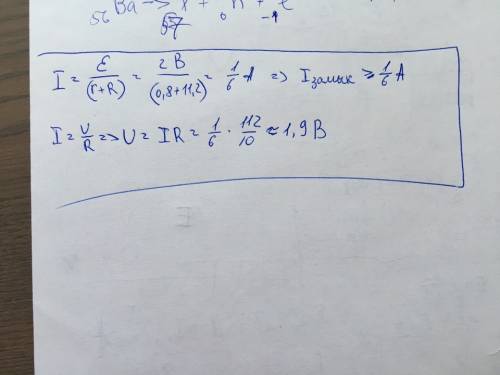 ₅₆Ba → Y + ₀n + ₋₁e
57
I = ℰ/(r+R) = 2В/(0,8+11,2) = 1/6 А => Iзамык ≥ 1/6 А
I = U/R => U = IR = 1/6 · 112/10 ≈ 1,9 В